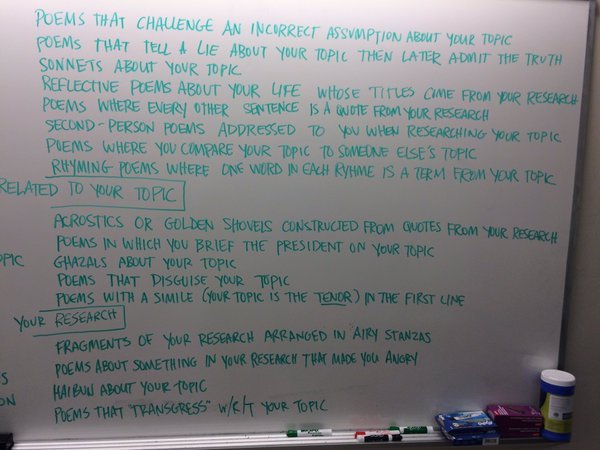 POEMS THAT CHALLENGE AN INCORRECT ASSUMPTION ABOUT YOUR TOPIC
POEMS THAT TELL A LIE ABOUT YOUR TOPIC THEN LATER ADMIT THE TRUTH
SONNETS ABOUT YOUR TOPIC
REFLECTIVE POEMS ABOUT YOUR LIFE WHOSE TITLES COME FROM YOUR RESEARCH
POEMS WHERE EVERY OTHER SENTENCE IS A QUOTE FROM YOUR RESEARCH
SECOND-PERSON POEMS ADDRESSED TO YOU WHEN RESEARCHING YOUR TOPIC
POEMS WHERE YOU COMPARE YOUR TOPIC TO SOMEONE ELSE'S TOPIC
RHYMING POEMS WHERE ONE WORD IN EACH RYHME IS A TERM FROM YOUR TOPIC
RELATED TO YOUR TOPIC
ACROSTICS OR GOLDEN SHOVELS CONSTRUCTED FROM QUOTES FROM YOUR RESEARCH
POEMS IN WHICH YOU BRIEF THE PRESIDENT ON YOUR TOPIC
GHAZALS ABOUT YOUR TOPIC
POEMS THAT DISGUISE YOUR TOPIC
POEMS WITH A SIMILE (YOUR TOPIC IS THE TENOR) IN THE FIRST LINE
YOUR RESEARCH
FRAGMENTS OF YOUR RESEARCH ARRANGED IN AIRY STANZAS
POEMS ABOUT SOMETHING IN YOUR RESEARCH THAT MADE YOU ANGRY
HAIBUN ABOUT YOUR TOPIC
POEMS THAT "TRANSGRESS" W/R/T YOUR TOPIC